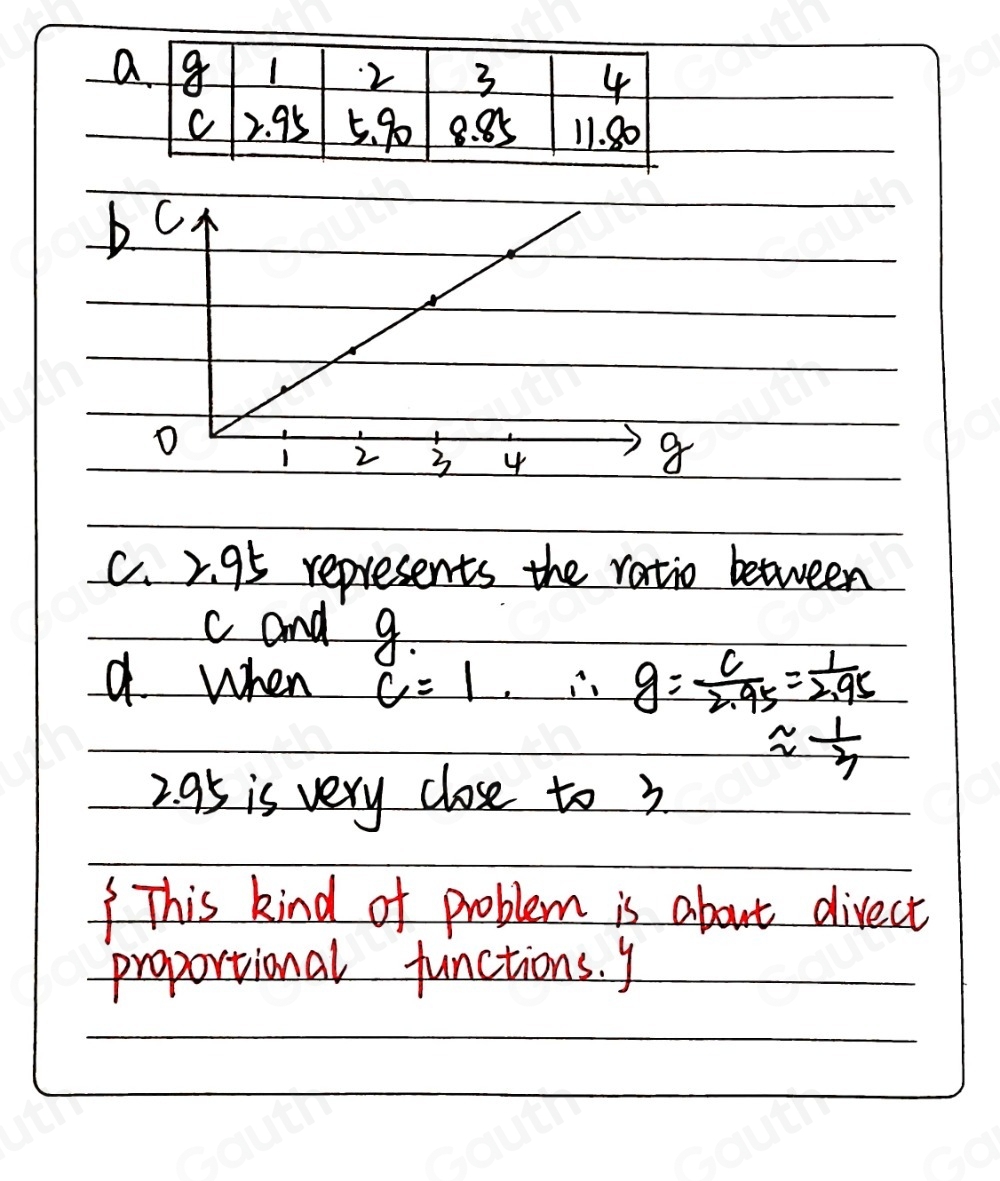 a. g 1 2 3 4
C 2.95 5.90 8.85 11.80
b. C
0 1 2 3 4 g
C. 2.95 represents the ratio between
C and g.
d. When C = 1. ∴ g = C/2.95 = 1/2.95
≈ 1/3
2.95 is very close to 3.
{This kind of problem is about direct
proportional functions.}
Gauth